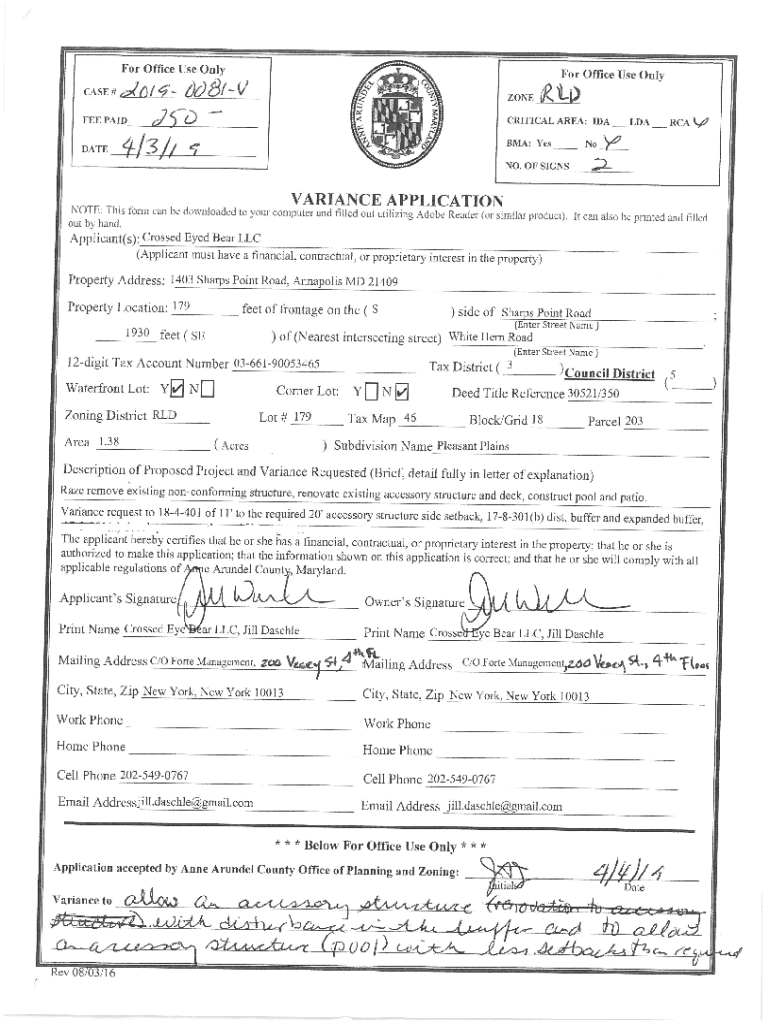 For Office Use Only
CASE # 2019-0081-V
FEE PAID 250 -
DATE 4/3/19
ANNE ARUNDEL COUNTY MARYLAND
For Office Use Only
ZONE RLD
CRITICAL AREA: IDA ___ LDA ___ RCA
BMA: Yes ___ No
NO. OF SIGNS 2
VARIANCE APPLICATION
NOTE: This form can be downloaded to your computer and filled out utilizing Adobe Reader (or similar product). It can also be printed and filled
out by hand.
Applicant(s): Crossed Eyed Bear LLC
(Applicant must have a financial, contractual, or proprietary interest in the property)
Property Address: 1403 Sharps Point Road, Annapolis MD 21409
Property Location: 179 feet of frontage on the ( S ) side of Sharps Point Road ;
(Enter Street Name )
1930 feet ( SE ) of (Nearest intersecting street) White Hern Road
(Enter Street Name )
12-digit Tax Account Number 03-661-90053465 Tax District ( 3 ) Council District ( 5 )
Waterfront Lot: Y ☑ N ☐ Corner Lot: Y ☐ N ☑ Deed Title Reference 30521/350
Zoning District RLD Lot # 179 Tax Map 45 Block/Grid 18 Parcel 203
Area 1.38 ( Acres ) Subdivision Name Pleasant Plains
Description of Proposed Project and Variance Requested (Brief, detail fully in letter of explanation)
Raze remove existing non-conforming structure, renovate existing accessory structure and deck, construct pool and patio.
Variance request to 18-4-401 of 11' to the required 20' accessory structure side setback, 17-8-301(b) dist. buffer and expanded buffer,
The applicant hereby certifies that he or she has a financial, contractual, or proprietary interest in the property; that he or she is
authorized to make this application; that the information shown on this application is correct; and that he or she will comply with all
applicable regulations of Anne Arundel County, Maryland.
Applicant's Signature Owner's Signature
Print Name Crossed Eye Bear LLC, Jill Daschle Print Name Crossed Eye Bear LLC, Jill Daschle
Mailing Address C/O Forte Management, 200 Vesey St, 4th FL Mailing Address C/O Forte Management, 200 Vesey St., 4th Floor
City, State, Zip New York, New York 10013 City, State, Zip New York, New York 10013
Work Phone Work Phone
Home Phone Home Phone
Cell Phone 202-549-0767 Cell Phone 202-549-0767
Email Address jill.daschle@gmail.com Email Address jill.daschle@gmail.com
* * * Below For Office Use Only * * *
Application accepted by Anne Arundel County Office of Planning and Zoning: 4/4/19
Initials Date
Variance to allow an accessory structure (renovation to accessory
structure) with disturbance in the buffer and to allow
an accessory structure (pool) with less setbacks than required
Rev 08/03/16